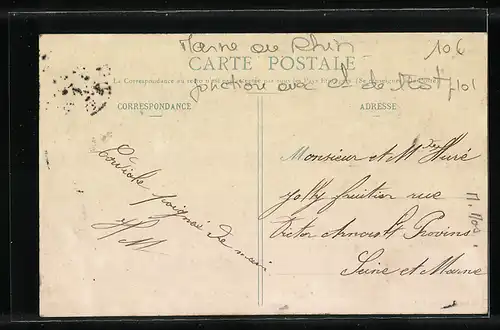 Marne au Rhin
106
CARTE POSTALE
La Correspondance au recto n'est pas
jonction avec et de l'Est
CORRESPONDANCE
ADRESSE
Cordiale poignée de main
HM
Monsieur et Mme Huré
fruitier rue
Victor Arnoult Provins
Seine et Marne